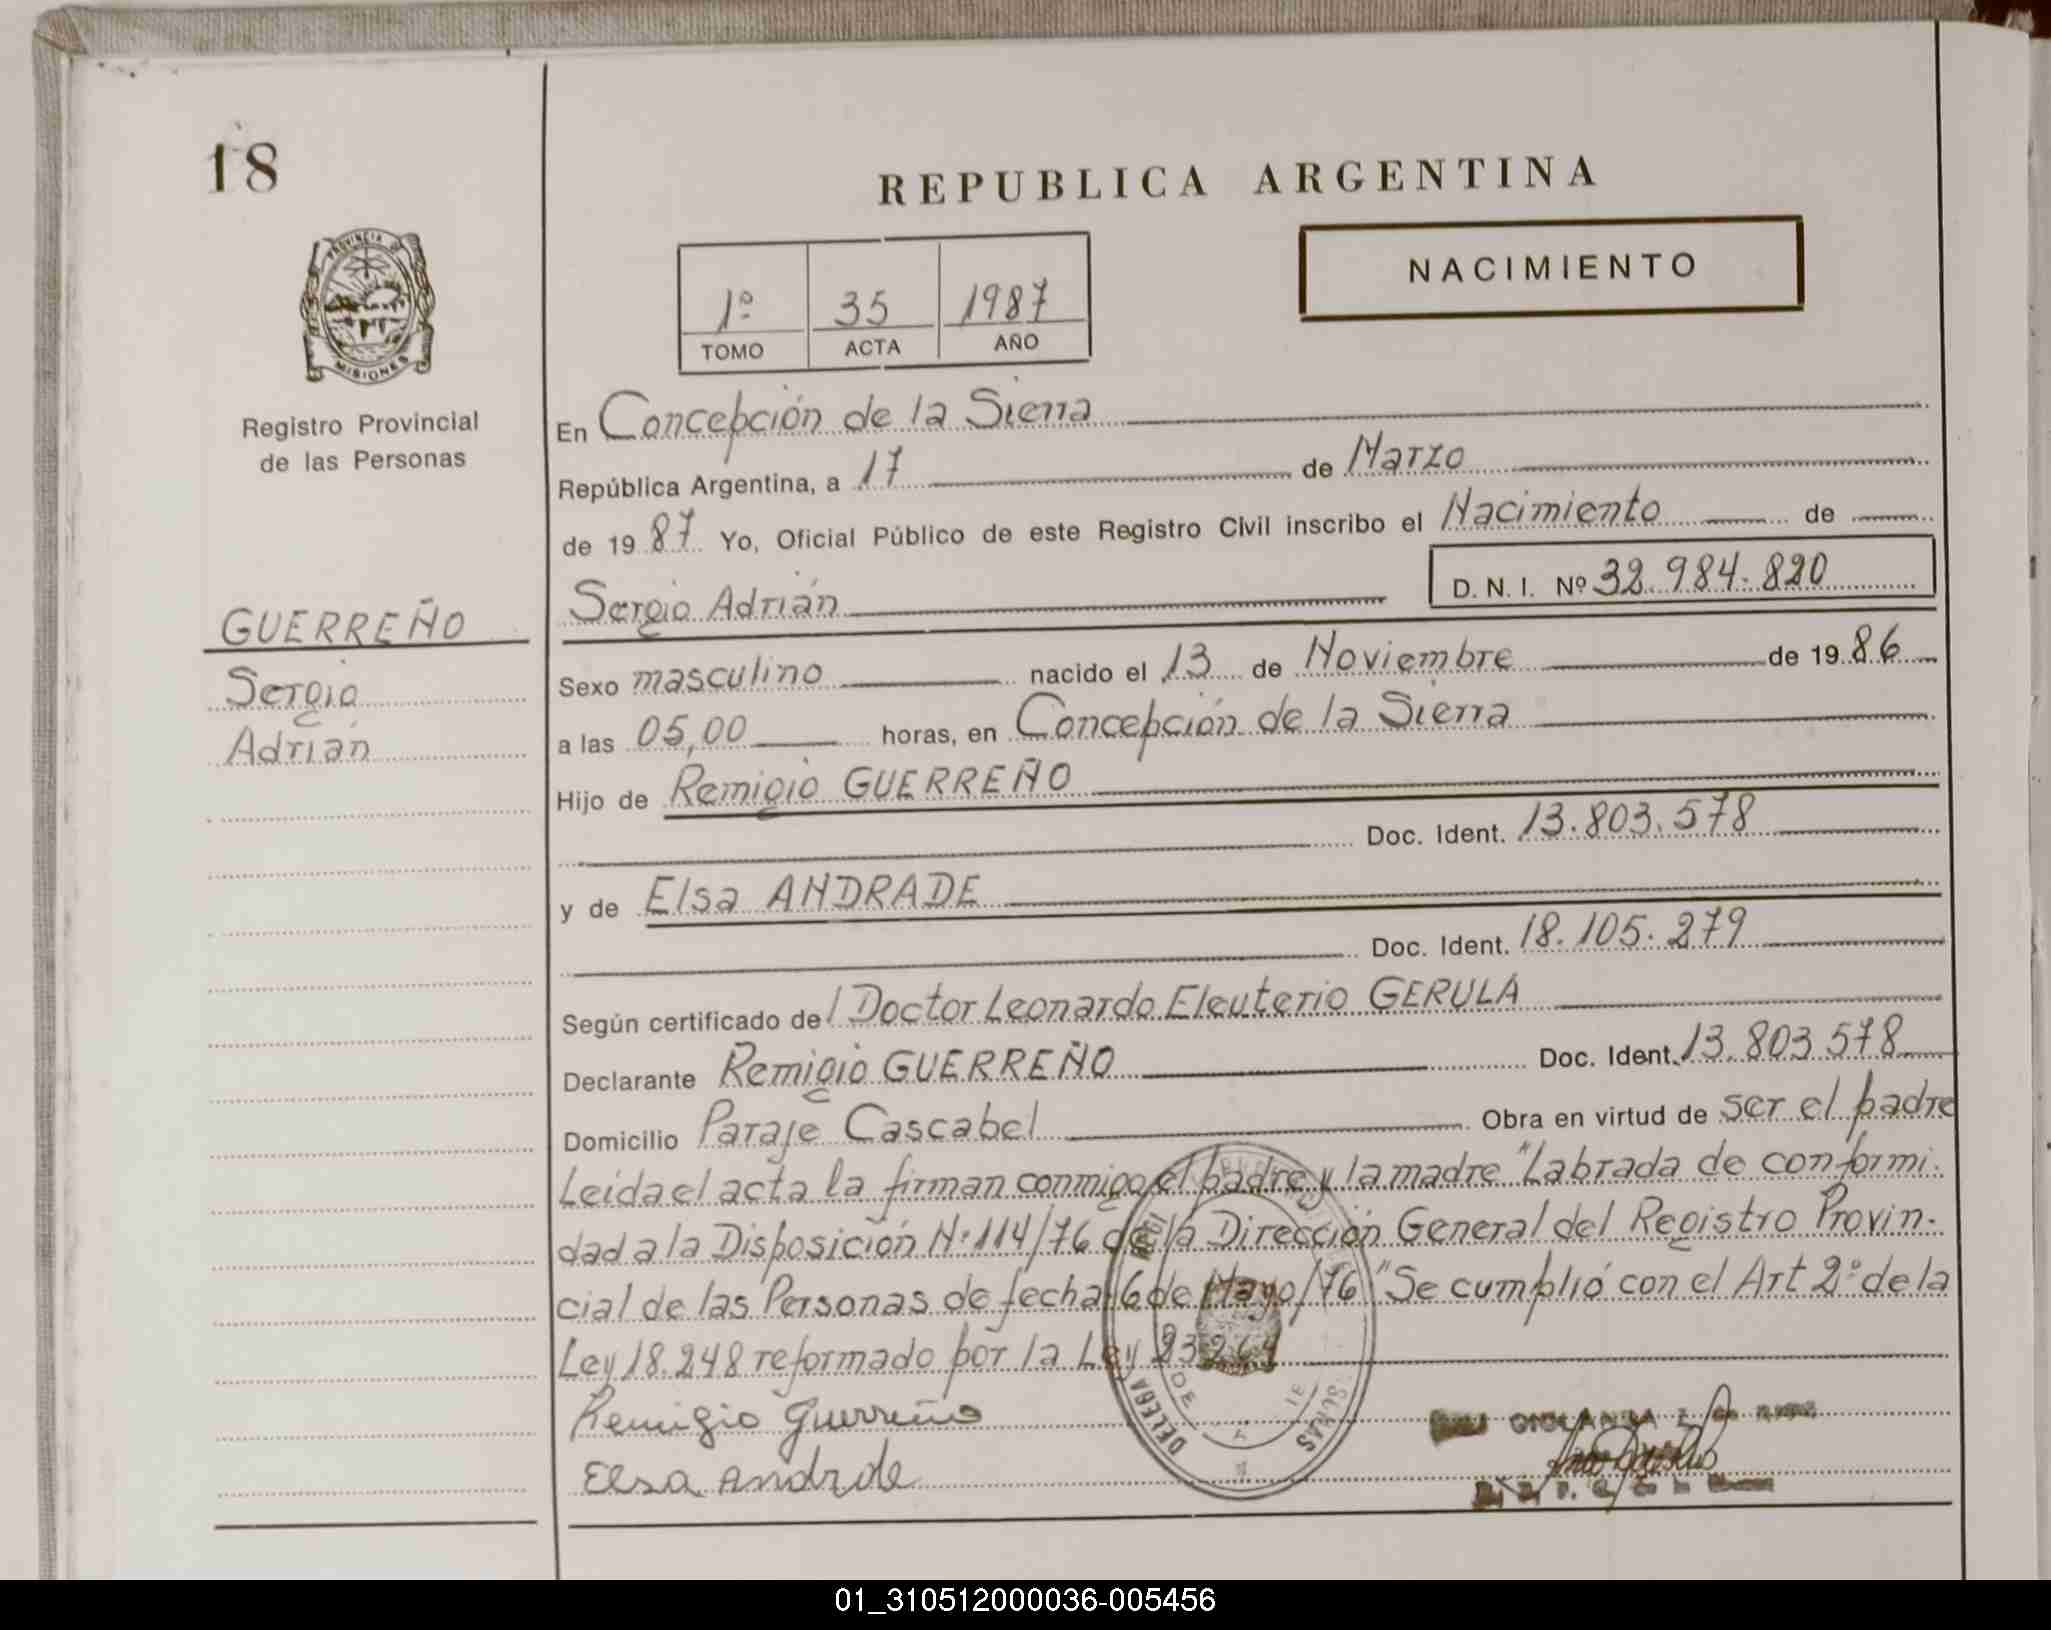 18
REPUBLICA ARGENTINA
NACIMIENTO
1º 35 1987
TOMO ACTA AÑO
PROVINCIA DE
MISIONES
Registro Provincial
de las Personas
GUERREÑO
Sergio
Adrián
En Concepción de la Sierra
República Argentina, a 17 de Marzo
de 1987 Yo, Oficial Público de este Registro Civil inscribo el Nacimiento de
Sergio Adrián D. N. I. Nº 32.984.820
Sexo masculino nacido el 13 de Noviembre de 1986
a las 05,00 horas, en Concepción de la Sierra
Hijo de Remigio GUERREÑO
Doc. Ident. 13.803.578
y de Elsa ANDRADE
Doc. Ident. 18.105.279
Según certificado del Doctor Leonardo Eleuterio GERULA
Declarante Remigio GUERREÑO Doc. Ident. 13.803.578
Domicilio Paraje Cascabel Obra en virtud de ser el padre
Leida el acta la firman conmigo el padre y la madre "Labrada de conformi-
dad a la Disposición N: 114/76 de la Dirección General del Registro Provin-
cial de las Personas de fecha 6 de Mayo/76" Se cumplió con el Art 2º de la
Ley 18.248 reformado por la Ley 23264
Remigio Guerreño
Elsa Andrde
01_310512000036-005456